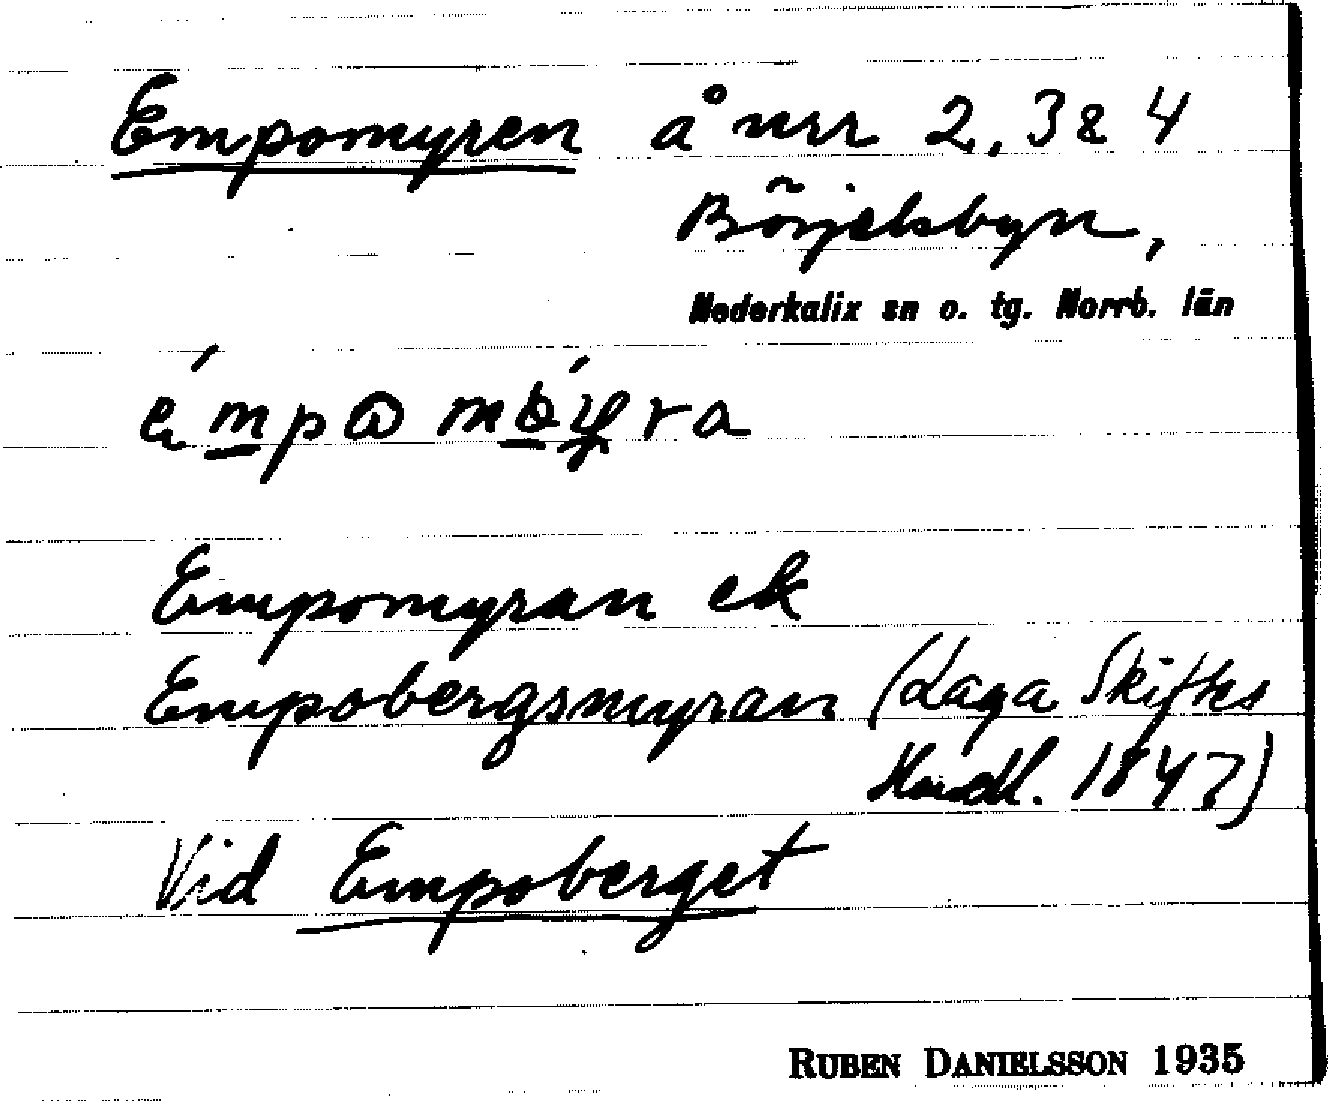 Empomyren å nrr 2, 3 & 4
Börjelsbyn,
Nederkalix sn o. tg. Norrb. län
Empomyran ek
Empobergsmyran (Laga Skiftes
Handl. 1847)
Vid Empoberget
RUBEN DANIELSSON 1935